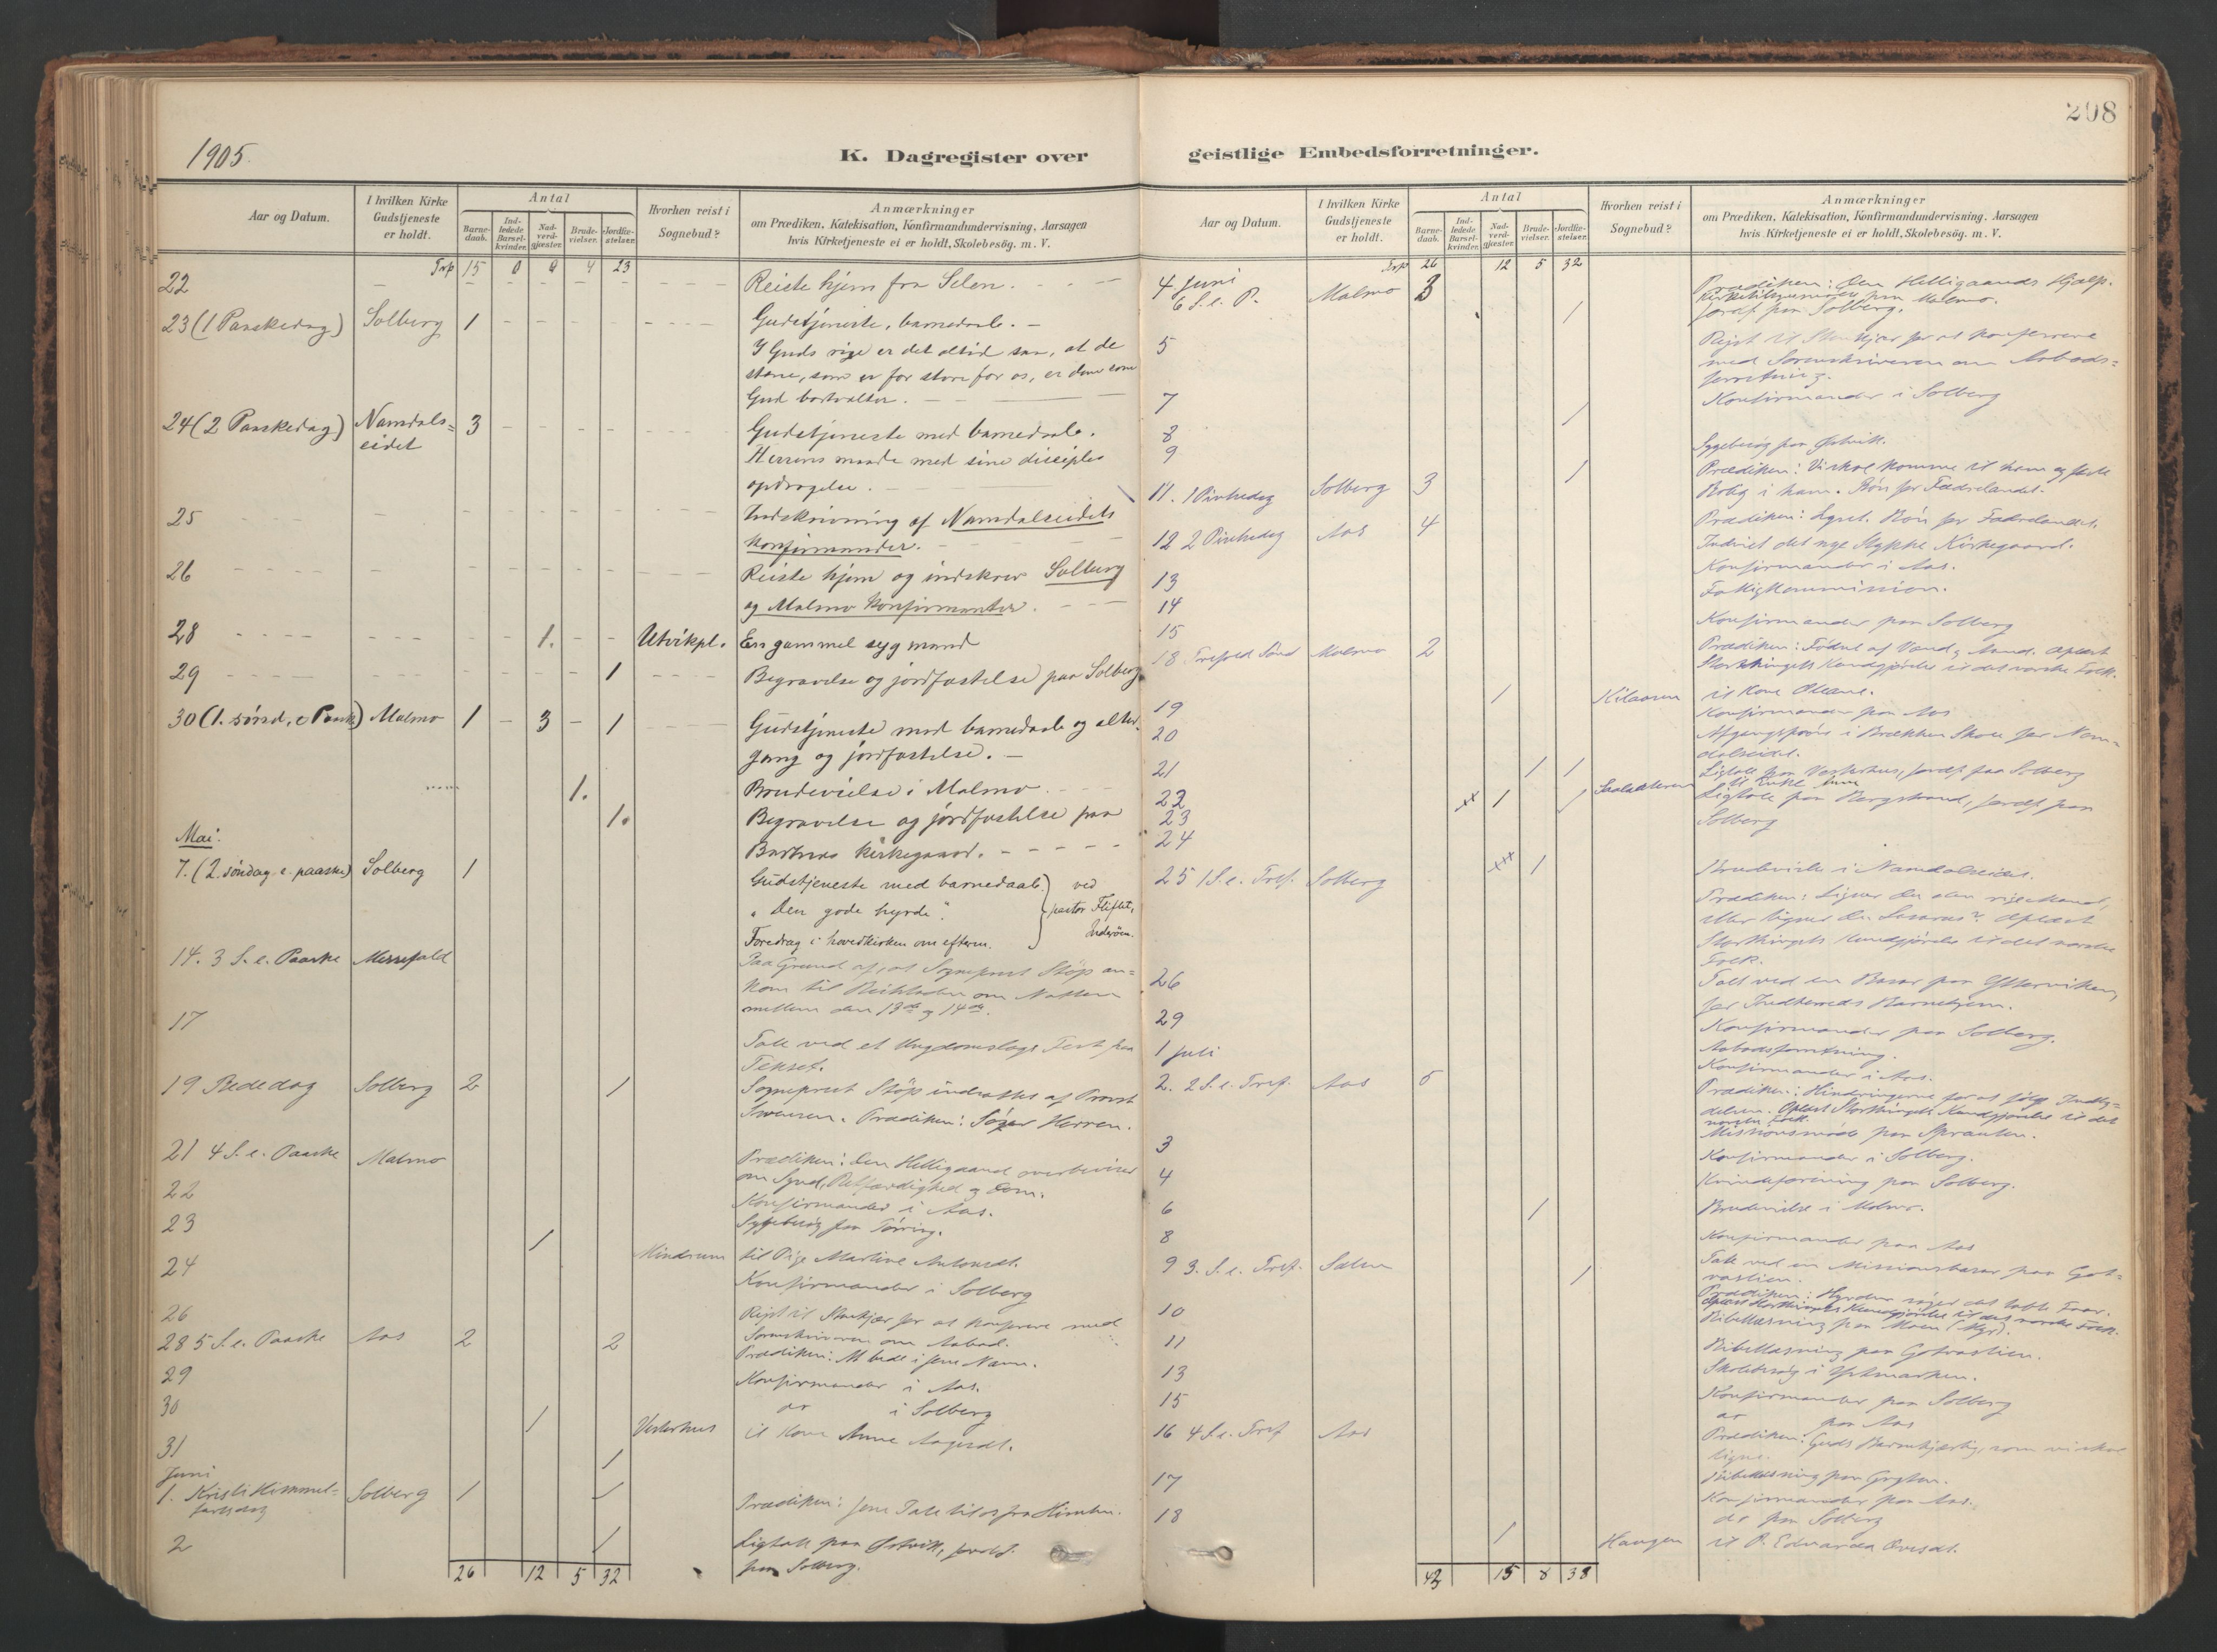 1905.
K. Dagregister over
Aar og Datum.
I hvilken Kirke
Gudstjeneste
er holdt.
Antal
Barne-
daab.
Ind-
ledede
Barsel-
kvinder.
Nad-
verd-
gjester.
Brude-
vielser.
Jordfæ-
stelser.
Hvorhen reist i
Sognebud?
Anmærkninger
om Prædiken, Katekisation, Konfirmandundervisning, Aarsagen
hvis Kirketjeneste ei er holdt, Skolebesøg. m. V.
Trp 15 0 9 4 23
22 Reiste hjem fra Selen.
23 (1 Paaskedag) Solberg 1 Gudstjeneste, barnedaab.
I Guds rige er det altid saa, at de
stene, som er for store for os, er dem som
Gud bortvælter.
24 (2 Paaskedag) Namdals=
eidet 3 Gudstjeneste med barnedaab.
Herrens maade med sine disciples
opdragelse.
25 Indskrivning af Namdalseidets
konfirmander.
26 Reiste hjem og indskrev Solberg
og Malmo konfirmanter.
28 1. Utvikpl. En gammel syg mand
29 1 Begravelse og jordfæstelse paa Solberg
30 (1. sønd. e Paask) Malmo 1 3 1 Gudstjeneste med barnedaab og alter-
gang og jordfæstelse.
1. Brudevielse i Malmo
1. Begravelse og jordfæstelse paa
kirkegaard.
Mai:
7. (2. søndag e. paaske) Solberg 1 Gudstjeneste med barnedaab.
"Den gode hyrde".
Foredrag i hovedkirken om efterm.
ved
pastor Fliflet,
Inderøen.
14. 3 S. e. Paaske Messefald Paa Grund af, at Sogneprest Støp an=
kom til om Natten
mellem den 13de og 14de.
17 Tale ved et Ungdomslags Fest paa
19 Bededag Solberg 2 1 Sogneprest Støp indsættes af Provst
Svensen. Prædiken: Søger Herren.
21 4 S. e. Paaske Malmo Prædiken: Den Helligaand overbeviser
om Synd, Retfærdighed og Dom.
22 Konfirmander i Aas.
23 Sygebesøg paa Tørring.
1 til Pige Martine
24 Konfirmander i Solberg
26 Rejst til Stenkjær for at konferere med
Sorenskriveren om Aabod.
28 5 S. e. Paaske Aas 2 2 Prædiken: At bede i Jesu Navn.
29 Konfirmander i Aas.
30 do i Solberg
1 Vesterhus til Kone Anne
31 1
Juni
1. Kristi Himmel=
fartsdag Solberg 1 1 Prædiken: Jesu Tale til os fra Himlen.
2 1 Ligtale paa Østvik, jordf.
paa Solberg.
26 12 5 32
208
geistlige Embedsforretninger.
Aar og Datum.
I hvilken Kirke
Gudstjeneste
er holdt.
Antal
Barne-
daab.
Ind-
ledede
Barsel-
kvinder.
Nad-
verd-
gjester.
Brude-
vielser.
Jordfæ-
stelser.
Hvorhen reist i
Sognebud?
Anmærkninger
om Prædiken, Katekisation, Konfirmandundervisning, Aarsagen
hvis Kirketjeneste ei er holdt, Skolebesøg. m. V.
Trp 26 12 5 32
4 Juni
6 S. e. P. Malmo 3 Prædiken: Den Helligaands Hjælp.
paa Malmo.
1 Jordf. paa Solberg.
5 Rejst til Stenkjær for at konferere
med Sorenskriveren om Aabods=
forretning.
7 Konfirmander i Solberg
8 1
9 Sygebesøg paa Østvik.
11. 1 Pinsedag Solberg 3 1 Prædiken: Vi skal komme til ham og fæste
Bolig i ham. Bøn for Fædrelandet.
12 2 Pinsedag Aas 4 Prædiken: Lyset. Bøn for Fædrelandet.
Indviet det nye Stykke Kirkegaard.
13 Konfirmander i Aas.
14 Fattigkommission.
15 Konfirmander paa Solberg
18 Trefold Sønd Malmo 2 Prædiken: Fødsel af Vand og Aand. Oplæst
Storthingets Kundgjørelse til det norske Folk.
1 til Kone
19 Konfirmander paa Aas
20 Afgangsprøve i Brækken Skole for Nam=
dalseidet.
21 1 1 Ligtale paa Vesterhus, jordf. paa Solberg
22 1 til Enke
23 1 Ligtale paa Bergstrand, jordf. paa
Solberg
24 1 Brudevielse i Namdalseidet.
25 1 S. e. Tref. Solberg Prædiken: Ligner du den rige Mand,
eller ligner du Lazarus? Oplæst
Storthingets Kundgjørelse til det norske
Folk.
26 Tale ved en Basar paa
for Indherreds Barnehjem.
29 Konfirmander paa Solberg.
1 Juli Aabodsforretning.
Konfirmander i Aas.
2. 2 S. e. Tref. Aas 5 Prædiken: Hindringerne for at følge Indby=
delsen. Oplæst Storthingets Kundgjørelse til det
norske Folk.
3 Missionsmøde paa
Konfirmander i Solberg.
4 Kvindeforening paa Solberg.
6 1 Brudevielse i Malmo.
8 Konfirmander paa Aas
9 3. S. e. Tref. Selen 1 Tale ved en Missionsbasar paa
Prædiken: Hyrden søger det tabte Faar.
Oplæst Storthingets Kundgjørelse til det norske Folk.
10 Bibellæsning paa Moen
11 Bibellæsning paa
13 Skolebesøg i
15 Konfirmander paa Solberg
do paa Aas
16 4 S. e. Tref Aas Prædiken: Guds Barmhjertig, som vi skal
ligne.
17 Bibellæsning paa
Konfirmander paa Aas.
18 do paa Solberg
1 Haugen til P. Edvarda
42 15 8 38